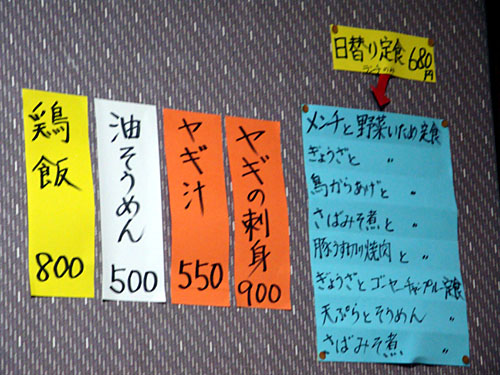 日替り定食 680円
ランチのみ
メンチと野菜いため定食
ぎょうざと 〃
鳥からあげと 〃
さばみそ煮と 〃
豚うす切り焼肉と 〃
ぎょうざとゴーヤーチャンプルー定食
天ぷらとそうめん 〃
さばみそ煮 〃
ヤギの刺身
900
ヤギ汁
550
油そうめん
500
鶏飯
800